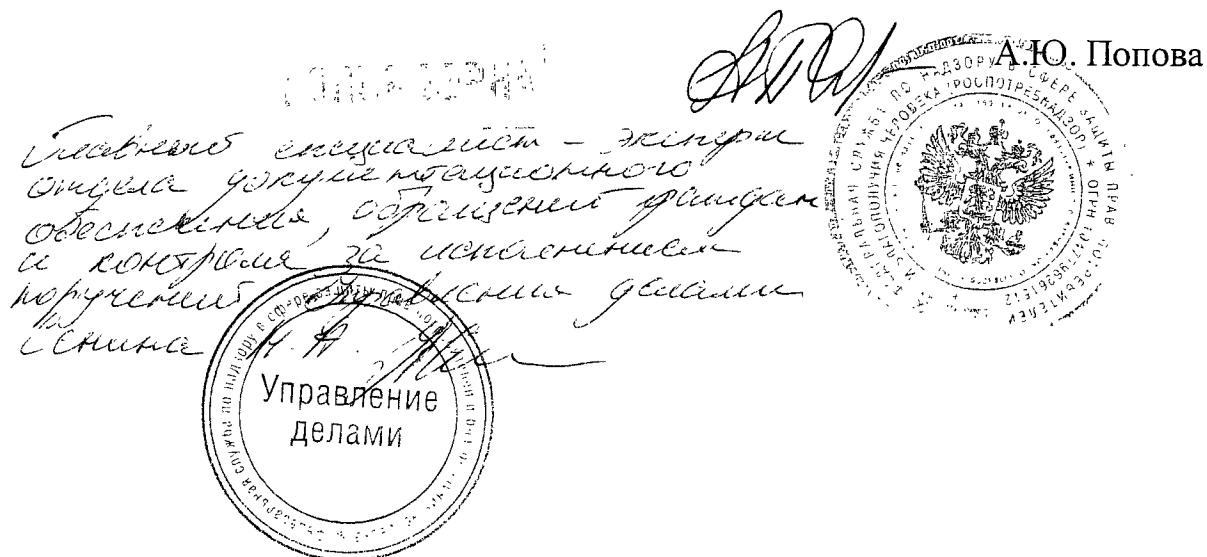 А.Ю. Попова
КОПИЯ ВЕРНА
Главный специалист – эксперт
отдела документационного
обеспечения, обращений граждан
и контроля за исполнением
поручений Управления делами
Н.А.
Управление
делами
ФЕДЕРАЛЬНАЯ СЛУЖБА ПО НАДЗОРУ В СФЕРЕ ЗАЩИТЫ ПРАВ ПОТРЕБИТЕЛЕЙ
И БЛАГОПОЛУЧИЯ ЧЕЛОВЕКА (РОСПОТРЕБНАДЗОР) * ОГРН
Федеральная служба по надзору в сфере защиты прав